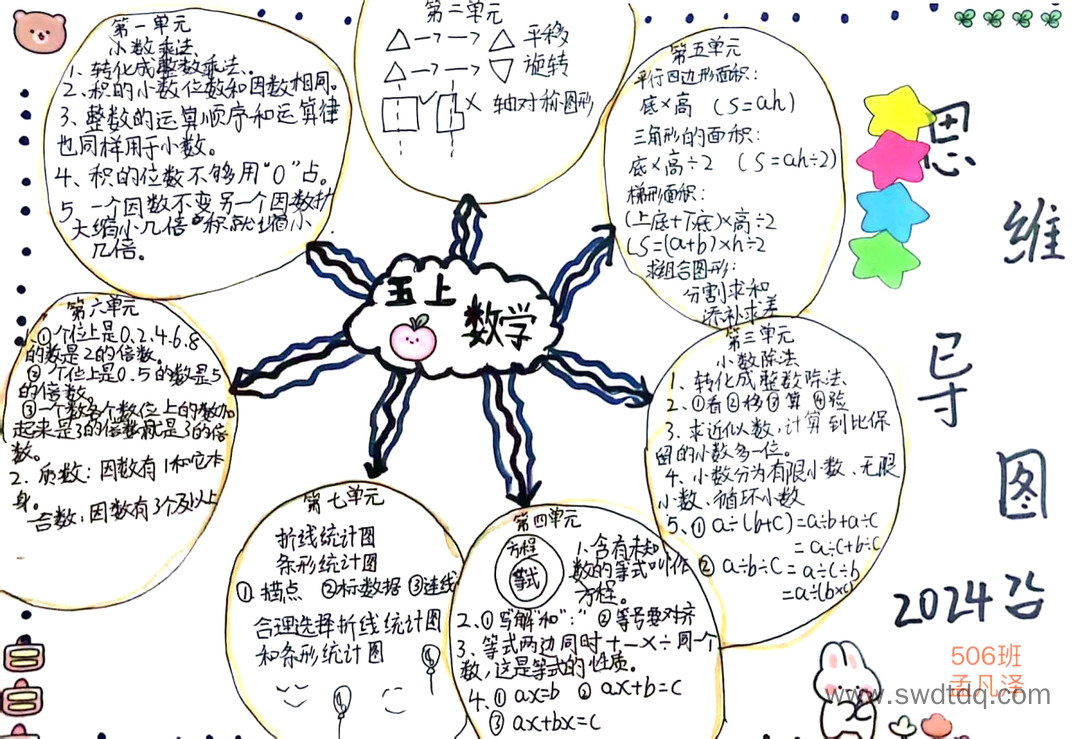 第一单元
小数乘法
1、转化成整数乘法、
2、积的小数位数和因数相同。
3、整数的运算顺序和运算律
也同样用于小数。
4、积的位数不够用“0”占。
5、一个因数不变另一个因数扩
大缩小几倍 积就缩小
几倍。
第二单元
平移
旋转
轴对称图形
第五单元
平行四边形面积:
底×高 (S=ah)
三角形的面积:
底×高÷2 (S=ah÷2)
梯形面积:
(上底+下底)×高÷2
(S=(a+b)×h÷2
求组合图形:
分割求和
添补求差
五上
数学
第六单元
1、①个位上是0、2、4、6、8
的数是2的倍数。
②个位上是0、5的数是5
的倍数。
③一个数各个数位上的数加
起来是3的倍数就是3的倍
数。
2、质数:因数有1和它本
身。
合数:因数有3个及以上
第三单元
小数除法
1、转化成整数除法、
2、①看②移③算④验
3、求近似数,计算到比保
留的小数多一位。
4、小数分为有限小数、无限
小数、循环小数
5、①a÷(b+C)=a÷b+a÷C
=a÷C+b÷C
②a÷b÷C=a÷C÷b
=a÷(b×C)
第七单元
折线统计图
条形统计图
①描点 ②标数据 ③连线
合理选择折线统计图
和条形统计图
第四单元
方程
等式
1、含有未知
数的等式叫作
方程。
2、①写“解”和“:” ②等号要对齐
3、等式两边同时+-×÷同一个
数,这是等式的性质。
4、①ax=b ②ax+b=C
③ax+bx=C
思
维
导
图
2024
506班
孟凡泽
www.swdtdq.com